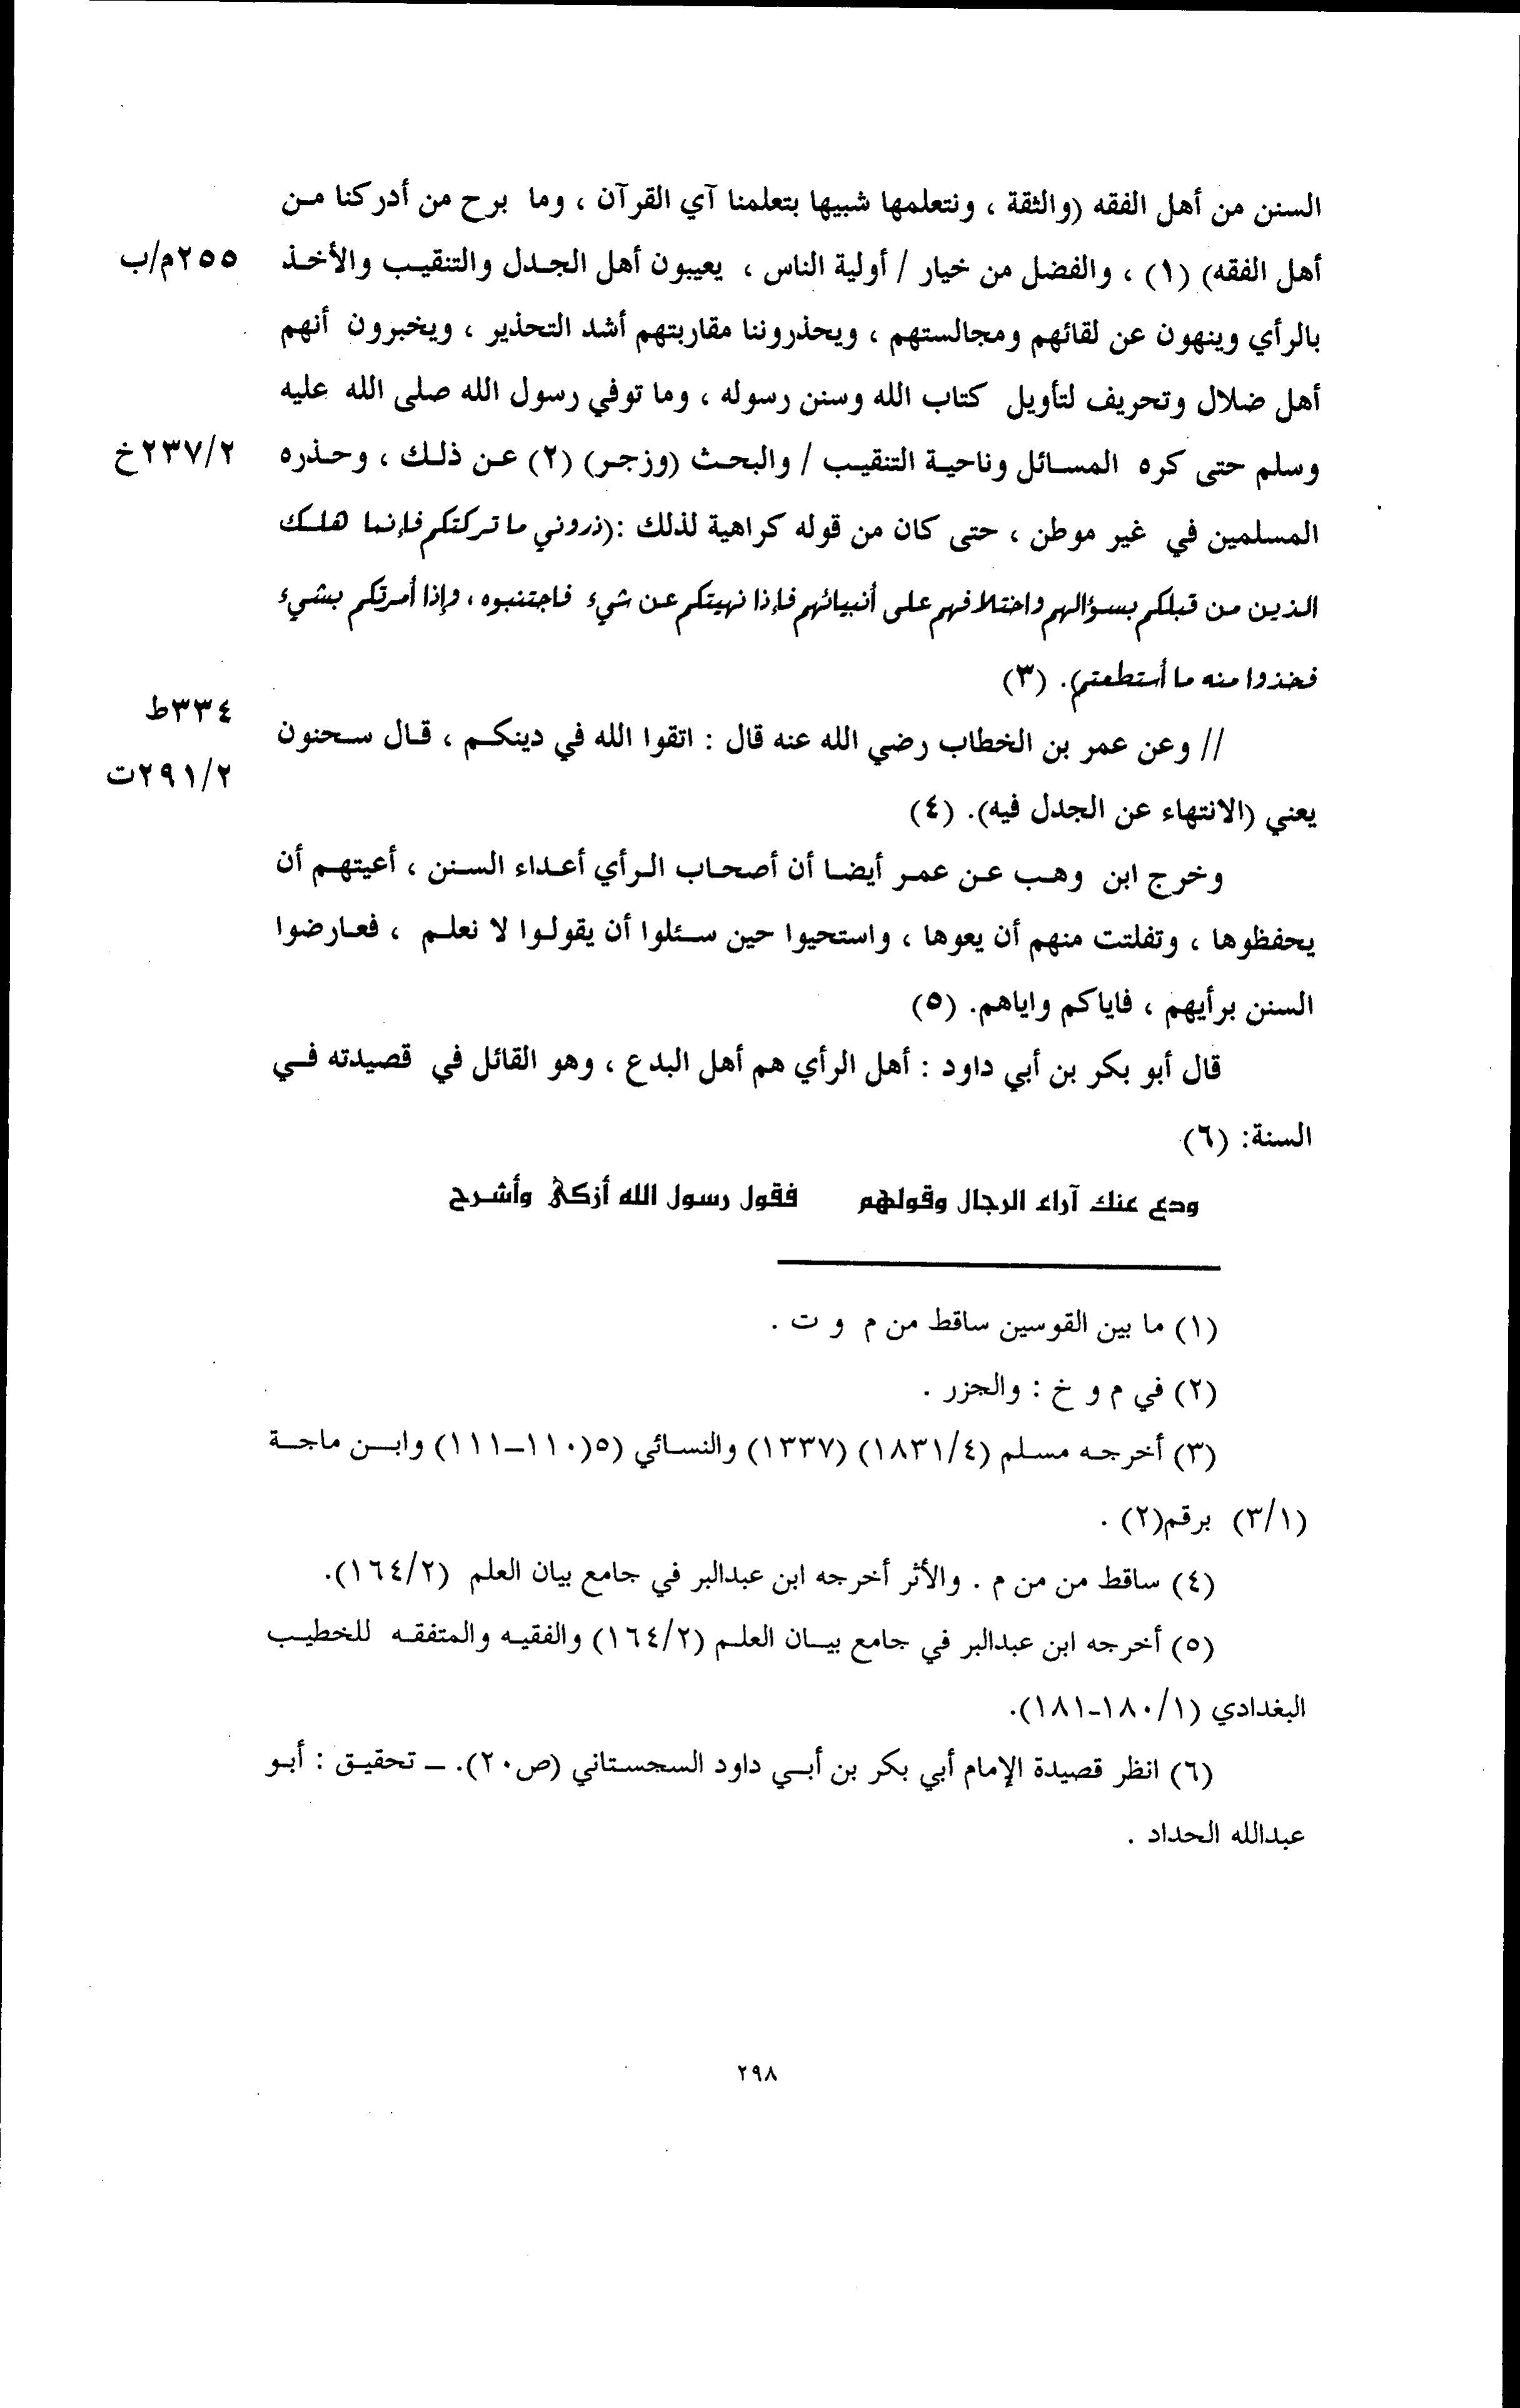 السنن من أهل الفقه (والثقة ، ونتعلمها شبيها بتعلمنا آي القرآن ، وما برح من أدركنا من
أهل الفقه) (١) ، والفضل من خيار / أولية الناس ، يعيبون أهل الجدل والتنقيب والأخذ
٢٥٥م/ب
بالرأي وينهون عن لقائهم ومجالستهم ، ويحذروننا مقاربتهم أشد التحذير ، ويخبرون أنهم
أهل ضلال وتحريف لتأويل كتاب الله وسنن رسوله ، وما توفي رسول الله صلى الله عليه
وسلم حتى كره المسائل وناحية التنقيب / والبحث (وزجر) (٢) عن ذلك ، وحذره
٢٣٧/٢خ
المسلمين في غير موطن ، حتى كان من قوله كراهية لذلك :(ذروني ما تركتكم فإنما هلك
الذين من قبلكم بسؤالهم واختلافهم على أنبيائهم فإذا نهيتكم عن شيء فاجتنبوه ، وإذا أمرتكم بشيء
فخذوا منه ما أستطعتم). (٣)
٣٣٤ط
// وعن عمر بن الخطاب رضي الله عنه قال : اتقوا الله في دينكم ، قال سحنون
٢٩١/٢ت
يعني (الانتهاء عن الجدل فيه). (٤)
وخرج ابن وهب عن عمر أيضا أن أصحاب الرأي أعداء السنن ، أعيتهم أن
يحفظوها ، وتفلتت منهم أن يعوها ، واستحيوا حين سئلوا أن يقولوا لا نعلم ، فعارضوا
السنن برأيهم ، فاياكم واياهم. (٥)
قال أبو بكر بن أبي داود : أهل الرأي هم أهل البدع ، وهو القائل في قصيدته في
السنة: (٦)
ودع عنك آراء الرجال وقولهم فقول رسول الله أزكى وأشرح
(١) ما بين القوسين ساقط من م و ت .
(٢) في م و خ : والجزر .
(٣) أخرجه مسلم (١٨٣١/٤) (١٣٣٧) والنسائي (٥(١١٠-١١١) وابن ماجة
(٣/١) برقم(٢) .
(٤) ساقط من من م . والأثر أخرجه ابن عبدالبر في جامع بيان العلم (١٦٤/٢).
(٥) أخرجه ابن عبدالبر في جامع بيان العلم (١٦٤/٢) والفقيه والمتفقه للخطيب
البغدادي (١٨٠/١-١٨١).
(٦) انظر قصيدة الإمام أبي بكر بن أبي داود السجستاني (ص٢٠). – تحقيق : أبو
عبدالله الحداد .
٢٩٨